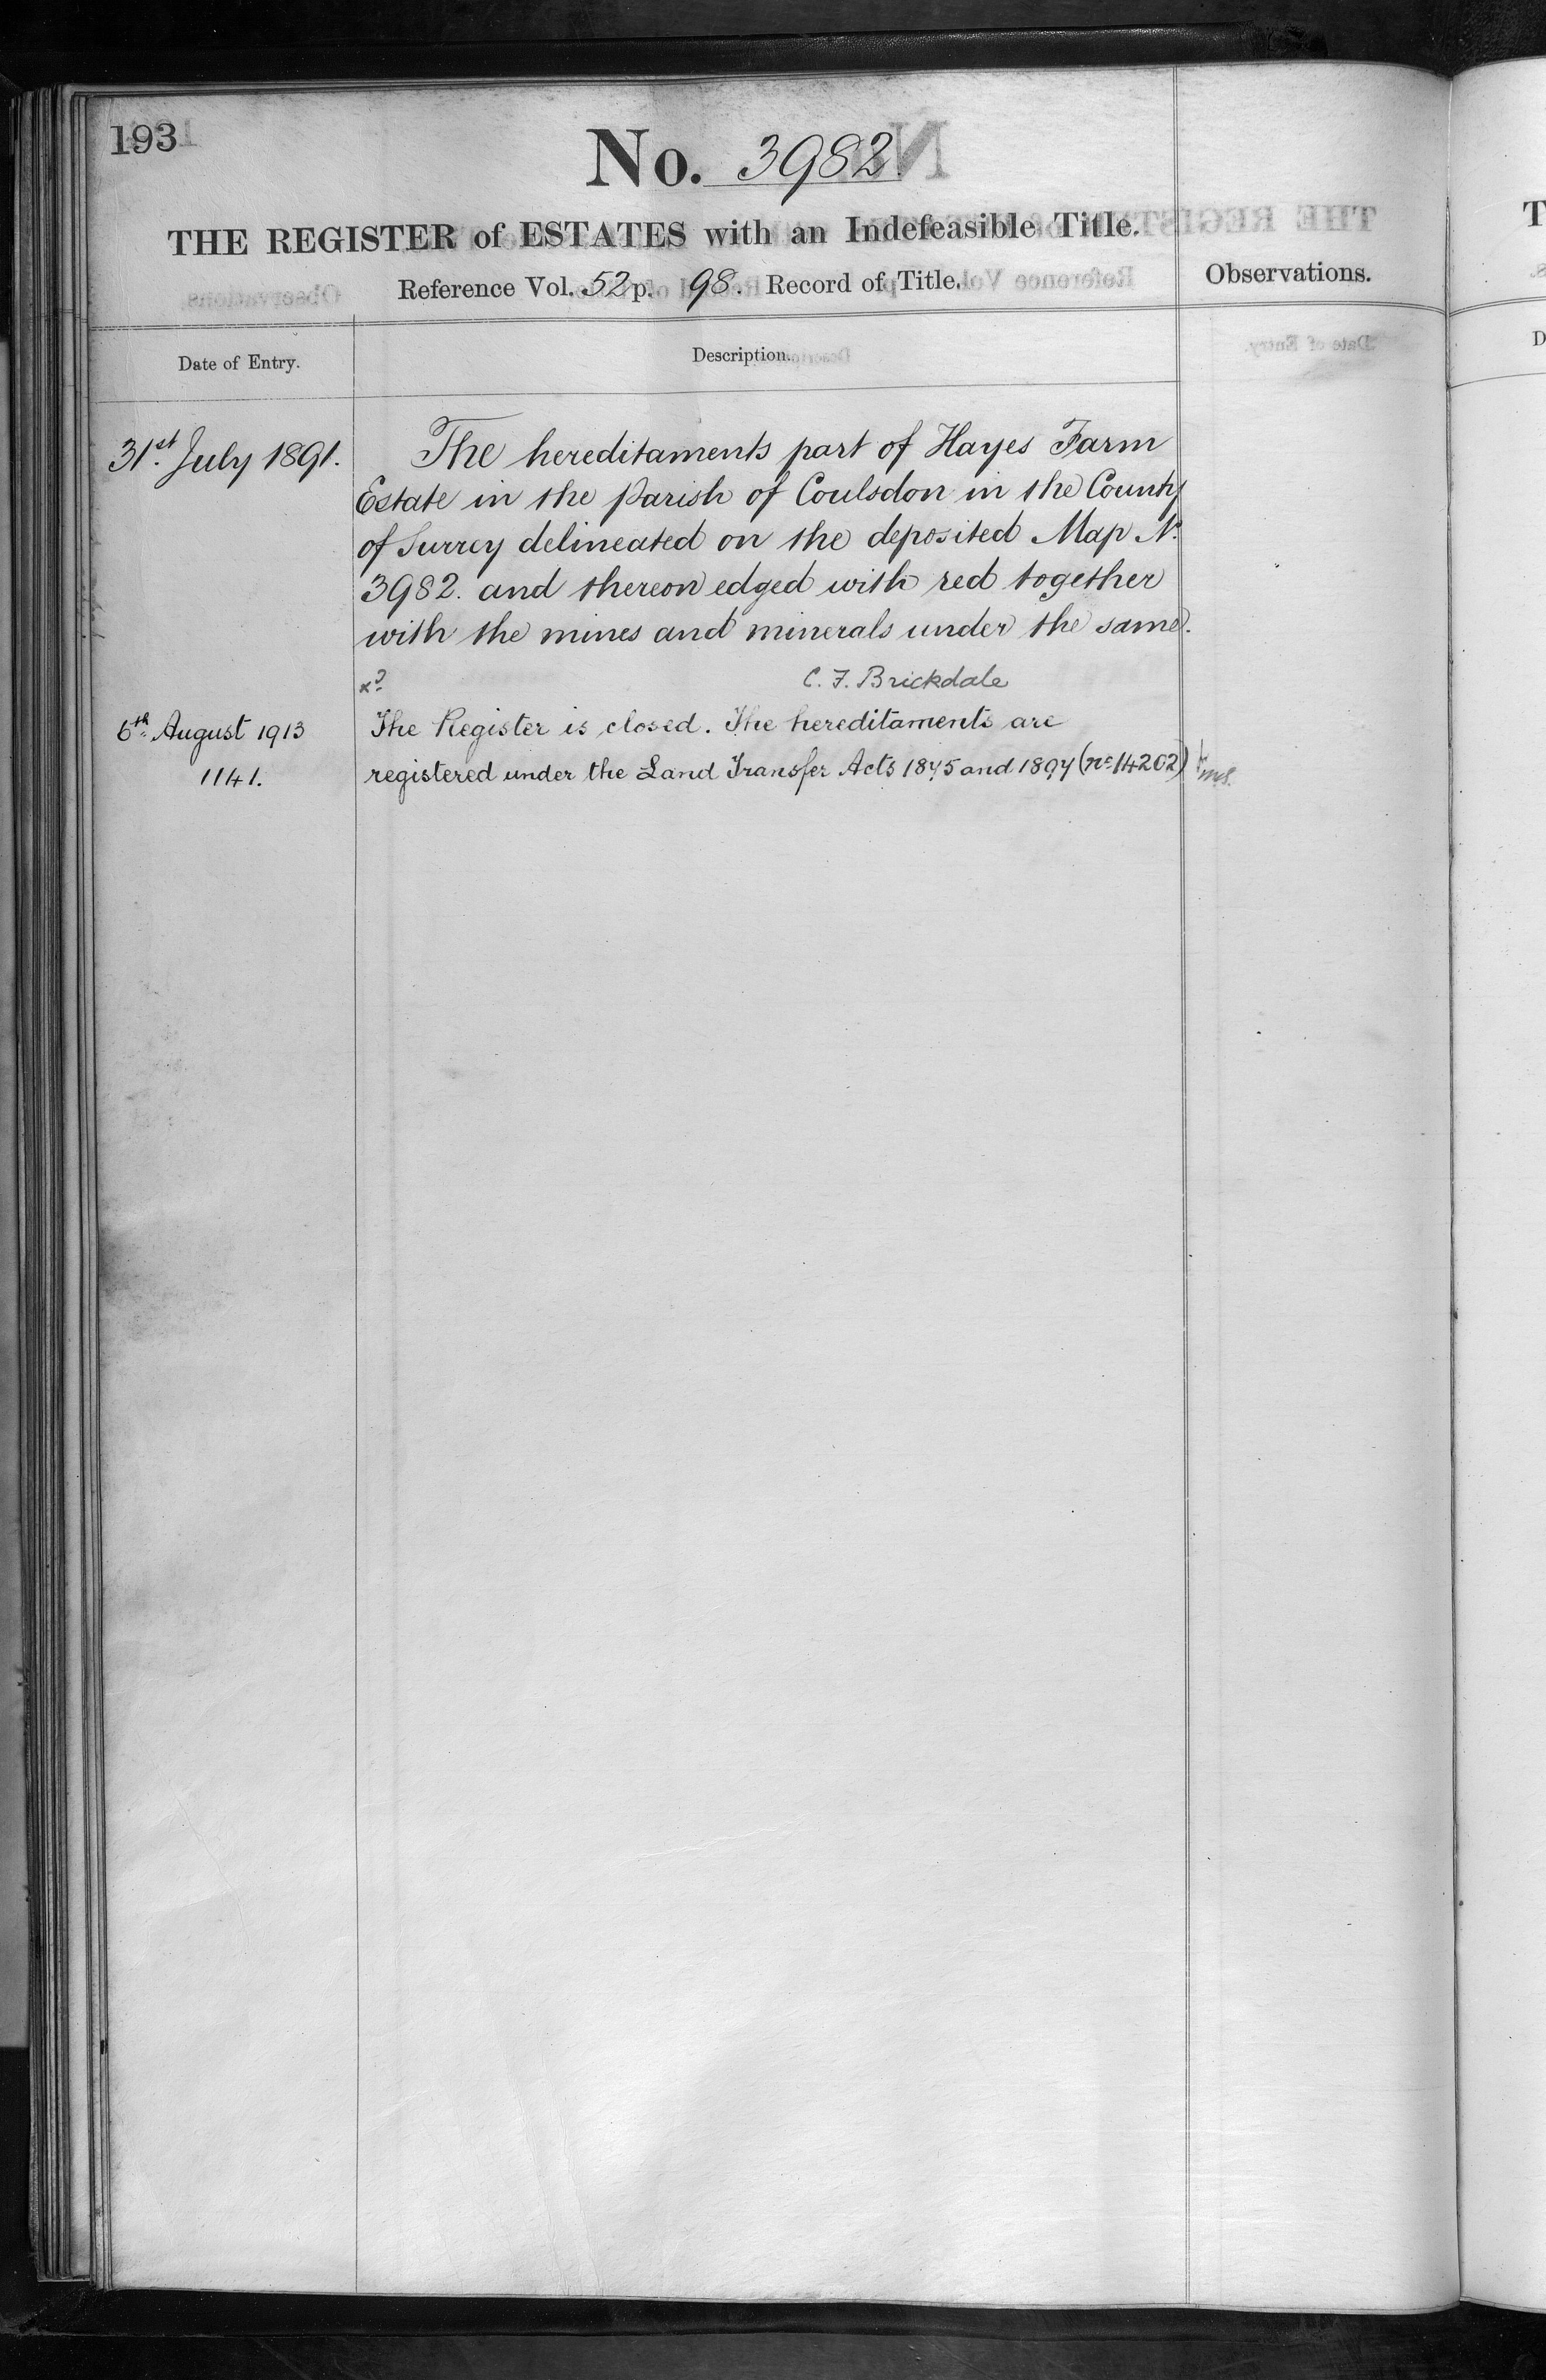 193
No. 3982
THE REGISTER of ESTATES with an Indefeasible Title.
Reference Vol. 52 p. 98. Record of Title.
Observations.
Date of Entry.
Description.
31st July 1891.
The hereditaments part of Hayes Farm
Estate in the parish of Coulsdon in the County
of Surrey delineated on the deposited Map No.
3982. and thereon edged with red together
with the mines and minerals under the same.
C. F. Brickdale
6th August 1913
1141.
The Register is closed. The hereditaments are
registered under the Land Transfer Acts 1875 and 1897 (no 14202)